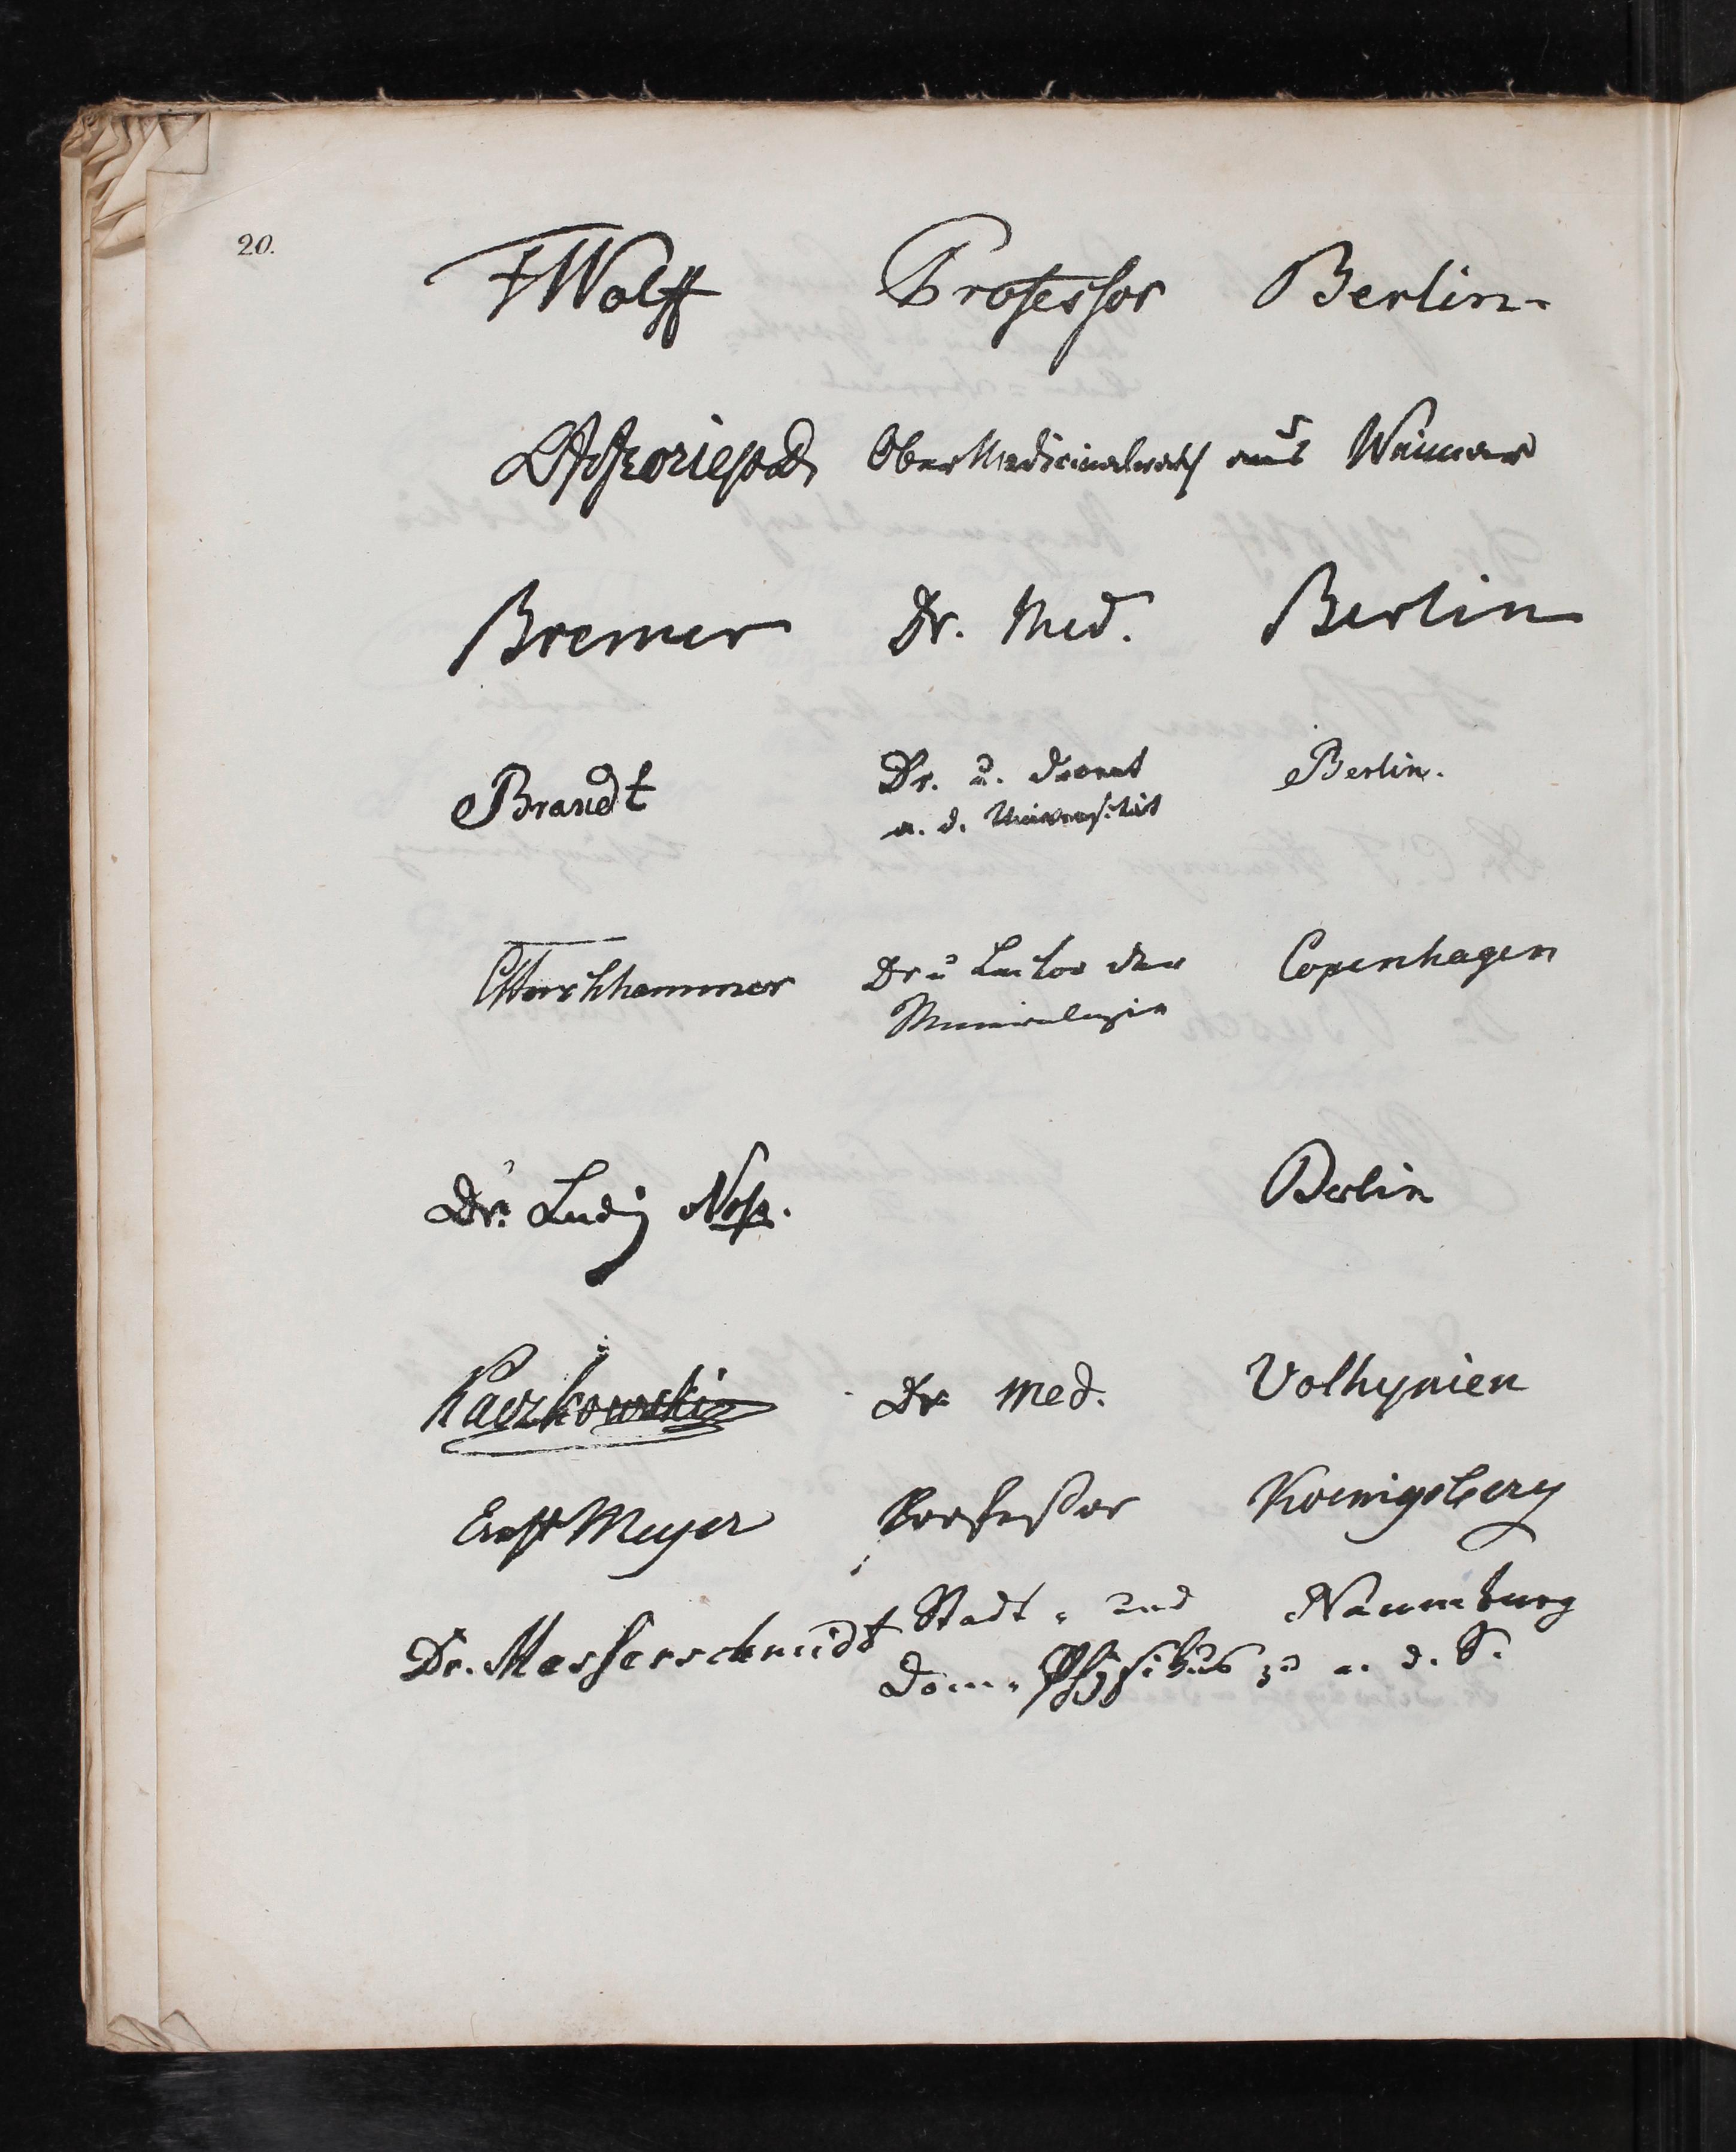 20.
FWolff Professor Berlin.
LFvFroriep D. OberMedicinalrath aus Weimar
Bremer Dr. Med. Berlin
Brandt Dr. u. Docent Berlin.
a. d. Universität
GForchhammer Dr u Lector der Copenhagen
Mineralogie
Dr. Ludwig Berlin
Kaczkowski Dr med. Volhynien
Ernst Meyer Professor Koenigsberg
Dr. Messerschmidt Stadt- und Naumburg
Dom-Physikus zu a. d. S.